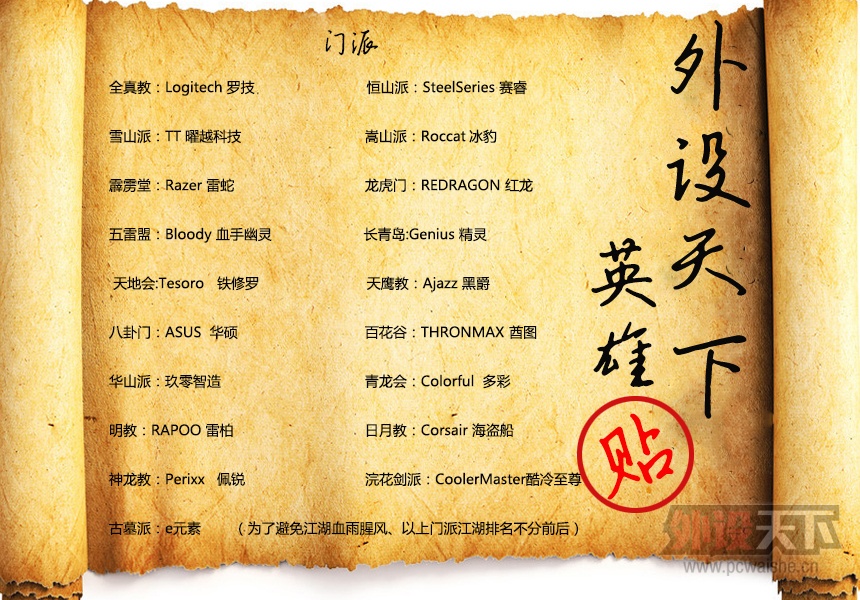 门派
全真教：Logitech 罗技 恒山派：SteelSeries 赛睿
雪山派：TT 曜越科技 嵩山派：Roccat 冰豹
霹雳堂：Razer 雷蛇 龙虎门：REDRAGON 红龙
五雷盟：Bloody 血手幽灵 长青岛:Genius 精灵
天地会:Tesoro 铁修罗 天鹰教：Ajazz 黑爵
八卦门：ASUS 华硕 百花谷：THRONMAX 酋图
华山派：玖零智造 青龙会：Colorful 多彩
明教：RAPOO 雷柏 日月教：Corsair 海盗船
神龙教：Perixx 佩锐 浣花剑派：CoolerMaster酷冷至尊
古墓派：e元素 （为了避免江湖血雨腥风、以上门派江湖排名不分前后）
外设天下
英雄贴
外设天下
www.pcwaishe.cn